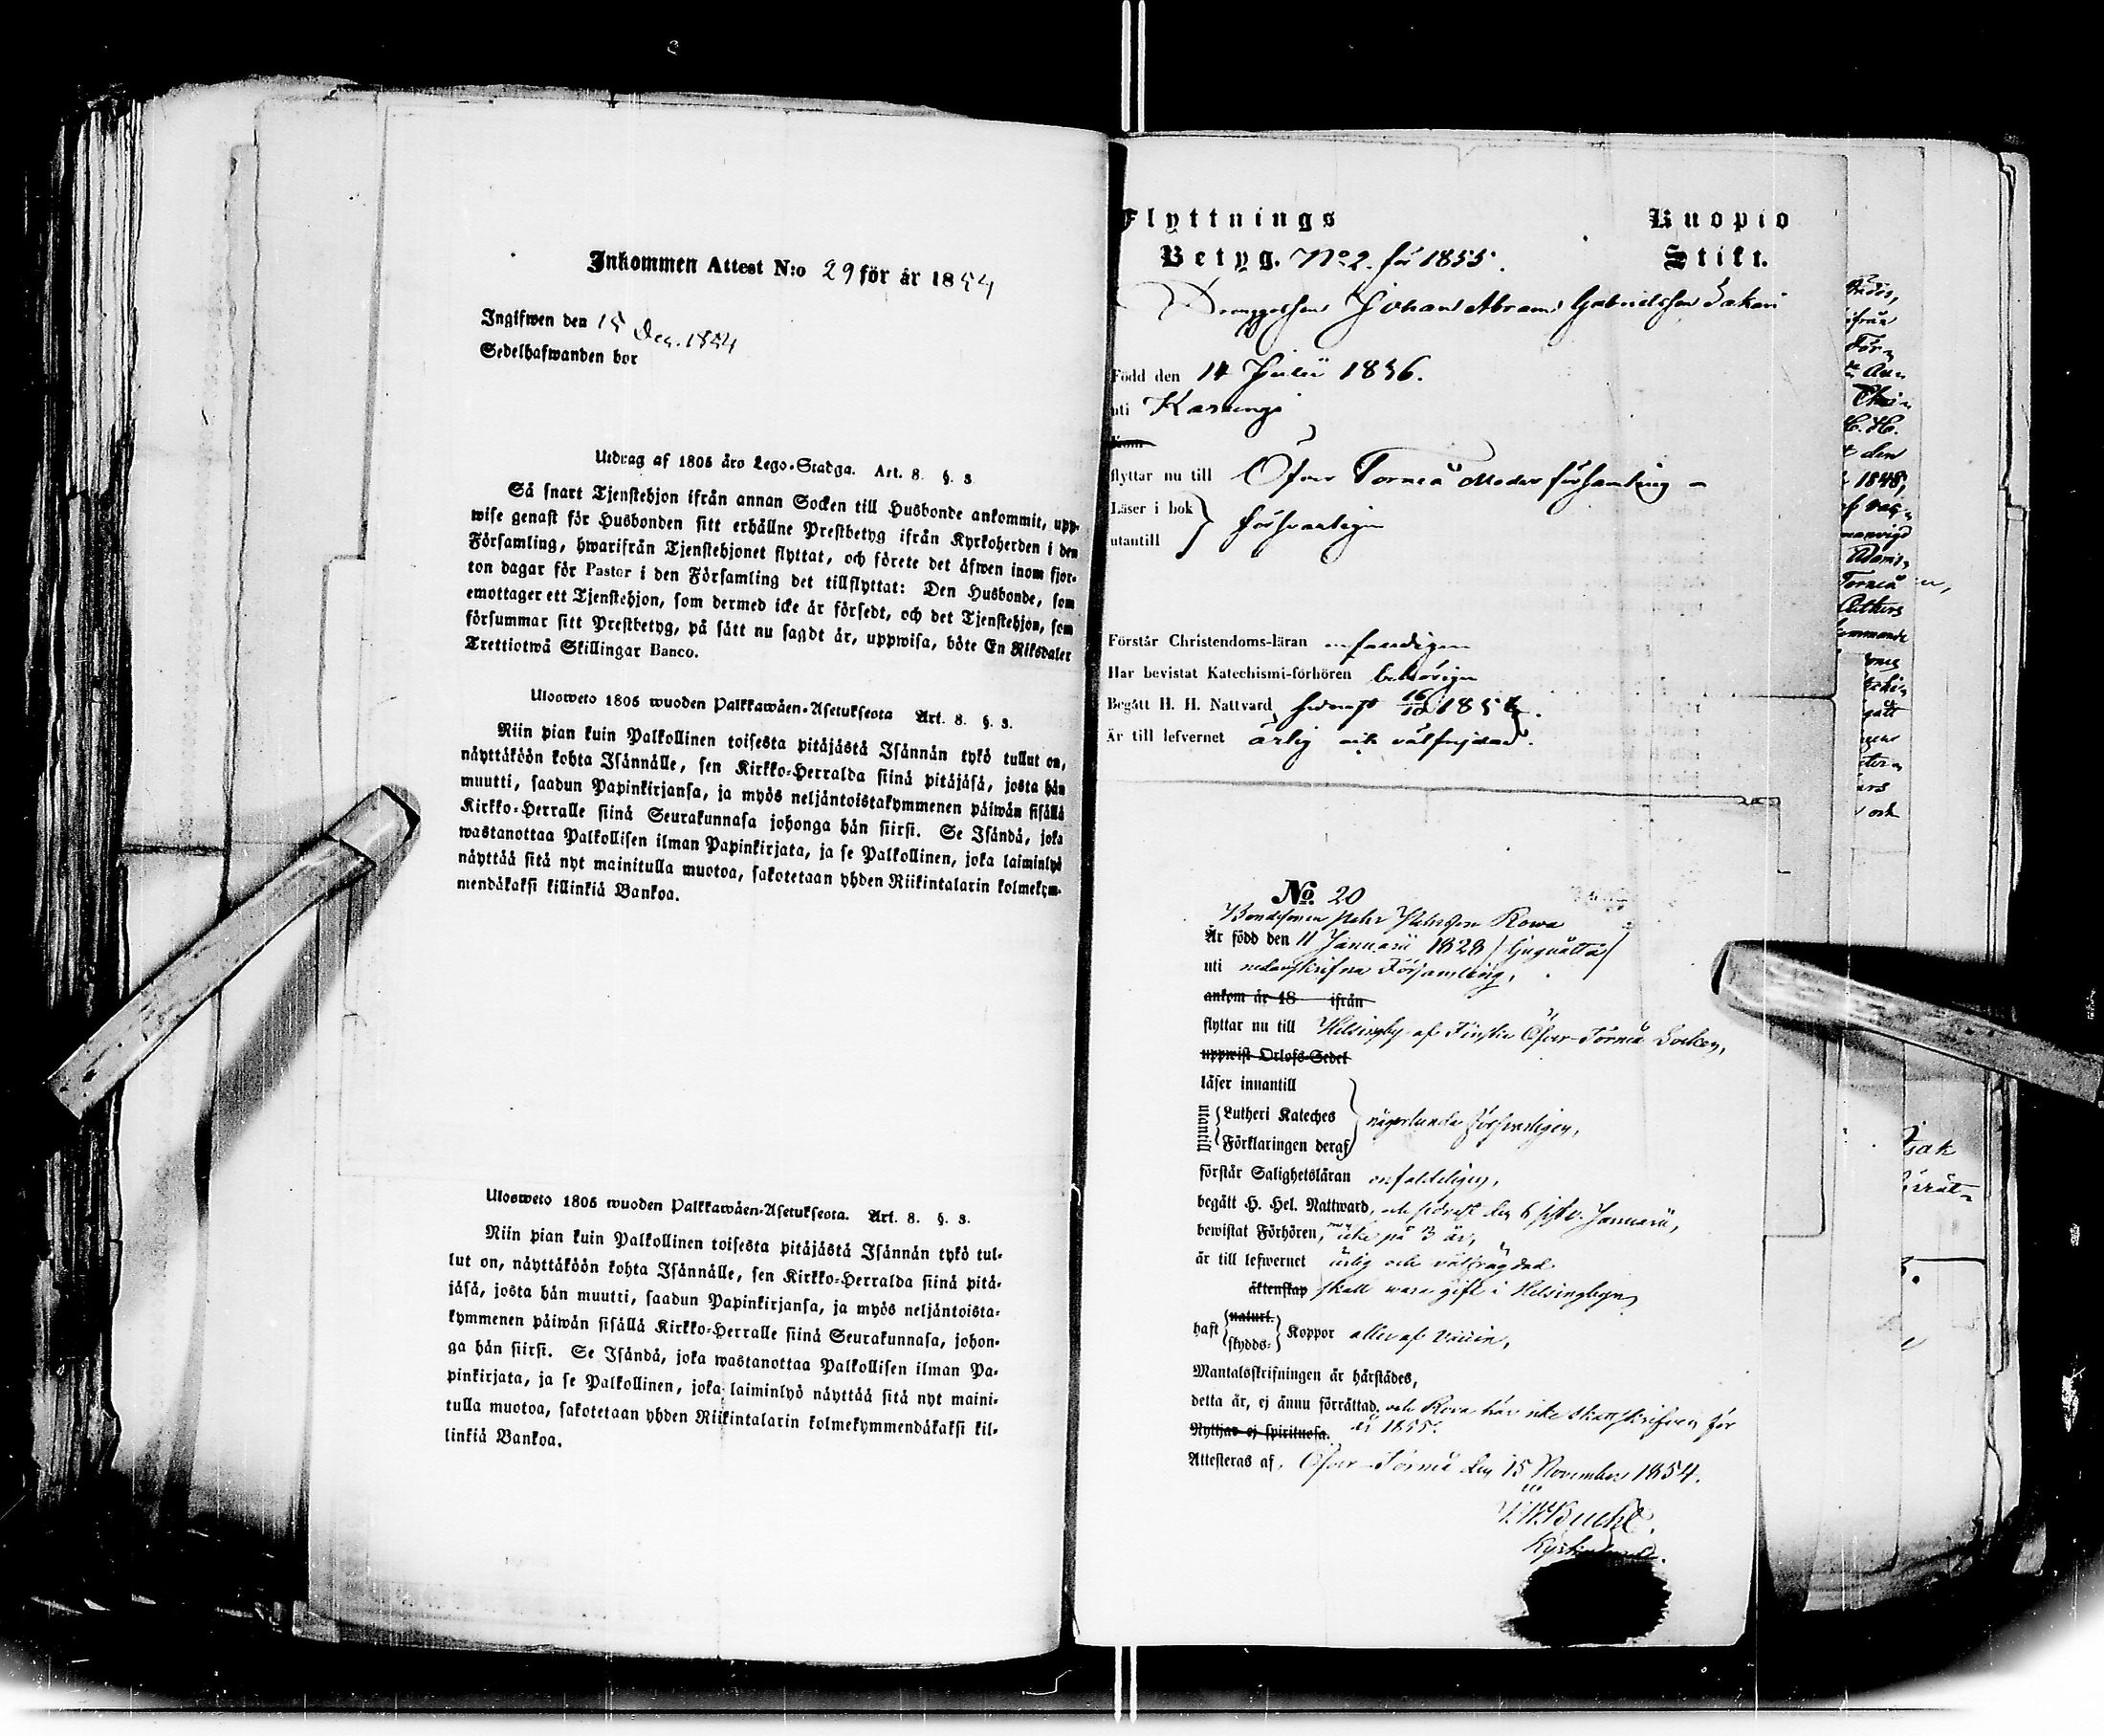 Inkommen Attest N:o 29 för år 1854
Ingifwen den 15 Dec. 1854
Sedelhafwanden bor
Utdrag af 1805 års Lego-Stadga. Art. 8. §. 3
Så snart Tjenstehjon ifrån annan Socken till Husbonde ankommit, upp-
wise genast för Husbonden sitt erhållne Prestbetyg ifrån Kyrkoherden i den
Församling, hwarifrån Tjenstehjonet flyttat, och förete det äfwen inom fjor-
ton dagar för Pastor i den Församling det tillflyttat: Den Husbonde, som
emottager ett Tjenstehjon, som dermed icke är försedt, och det Tjenstehjon, som
försummar sitt Prestbetyg, på sätt nu sagdt är, uppwisa, böte En Riksdaler
Trettiotwå Skillingar Banco.
Ulosweto 1805 wuoden Palkkawäen-Asetuksesta Art. 8. §. 3.
Niin pian kuin Palkollinen toisesta pitäjästä Isännän tykö tullut on,
näyttäköön kohta Isännälle, sen Kirkko-Herralda siinä pitäjäsä, josta hän
muutti, saadun Papinkirjansa, ja myös neljäntoistakymmenen päiwän sisällä
Kirkko-Herralle siinä Seurakunnasa johonga hän siirsi. Se Isändä, joka
wastanottaa Palkollisen ilman Papinkirjata, ja se Palkollinen, joka laiminlyö
näyttää sitä nyt mainitulla muotoa, sakotetaan yhden Riikintalarin kolmekym-
mendäkaksi killinkiä Bankoa.
Ulosweto 1805 wuoden Palkkawäen-Asetuksesta. Art. 8. §. 3.
Niin pian kuin Palkollinen toisesta pitäjästä Isännän tykö tul-
lut on, näyttäköön kohta Isännälle, sen Kirkko-Herralda siinä pitä-
jäsä, josta hän muutti, saadun Papinkirjansa, ja myös neljäntoista-
kymmenen päiwän sisällä Kirkko-Herralle siinä Seurakunnasa, johon-
ga hän siirsi. Se Isändä, joka wastanottaa Palkollisen ilman Pa-
pinkirjata, ja se Palkollinen, joka laiminlyö näyttää sitä nyt maini-
tulla muotoa, sakotetaan yhden Riikintalarin kolmekymmendäkaksi kil-
linkiä Bankoa.
Flyttnings Kuopio
Betyg. No 2. för 1855. Stift.
Johan Abram Gabrielsson
Född den 14 Julii 1836.
uti Karungi
Kom
flyttar nu till Öfver Torneå Moder församling
Läser i bok
utantill försvarligen
Förstår Christendoms-läran enfaldigen
Har bevistat Katechismi-förhören behörigen
Begått H. H. Nattvard sednast 16/10 1854.
Är till lefvernet ärlig och välfrejdad.
No. 20
Bondesonen Pehr Pehrsson Kowa
Är född den 11 Januarii 1828 (tjuguåtta)
uti nedanskrifne Församling,
ankom år 18 ifrån
flyttar nu till Helsingby af Finska Öfver-Torneå Socken,
uppwist Orlofs-Sedel
läser innantill
utantill Lutheri Kateches någorlunda försvarligen,
Förklaringen deraf
förstår Salighetsläran enfaldeligen,
begått H. Hel. Nattward, och sednast den 6 sistl. Januarii,
bewistat Förhören, men icke på 3 år,
är till lefwernet ärlig och välfrägdad
äktenskap skall vara gift i Helsingbyn
haft naturl. skydds- Koppor eller af Vaccin,
Mantalsskrifningen är härstädes,
detta år, ej ännu förrättad, och Kowa här icke skattskrifven för
Nyttjar ej spirituosa. år 1855.
Attesteras af, Öfver-Torneå den 15 November 1854.